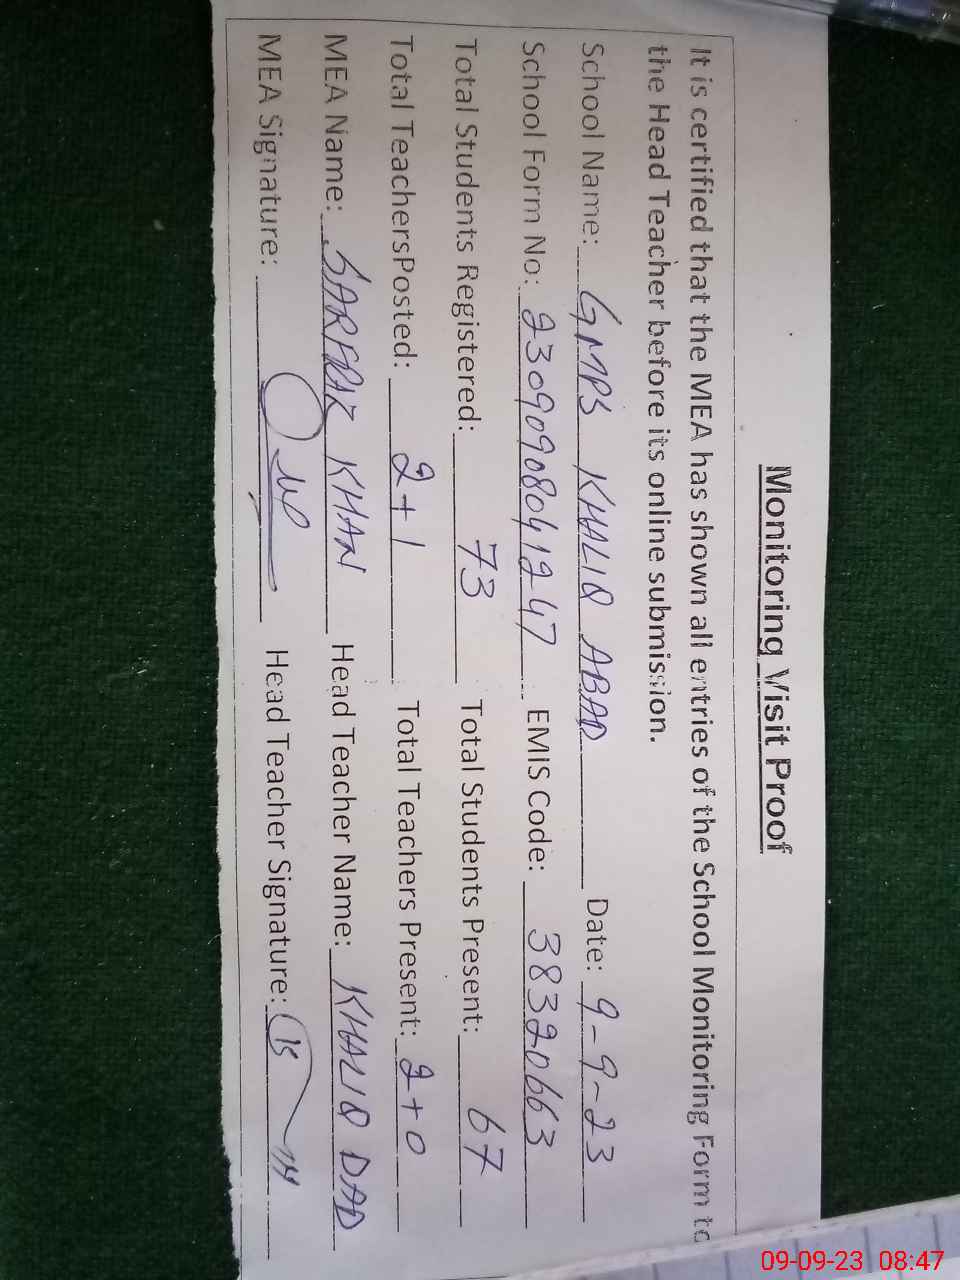 Monitoring Visit Proof
It is certified that the MEA has shown all entries of the School Monitoring Form to
the Head Teacher before its online submission.
School Name: GMPS KHALIQ ABAD Date: 9-9-23
School Form No: 23090908041247 EMIS Code: 38320663
Total Students Registered: 73 Total Students Present: 67
Total TeachersPosted: 2+1 Total Teachers Present: 2+0
MEA Name: SARFRAZ KHAN Head Teacher Name: KHALIQ DAD
MEA Signature: Head Teacher Signature:
09-09-23 08:47